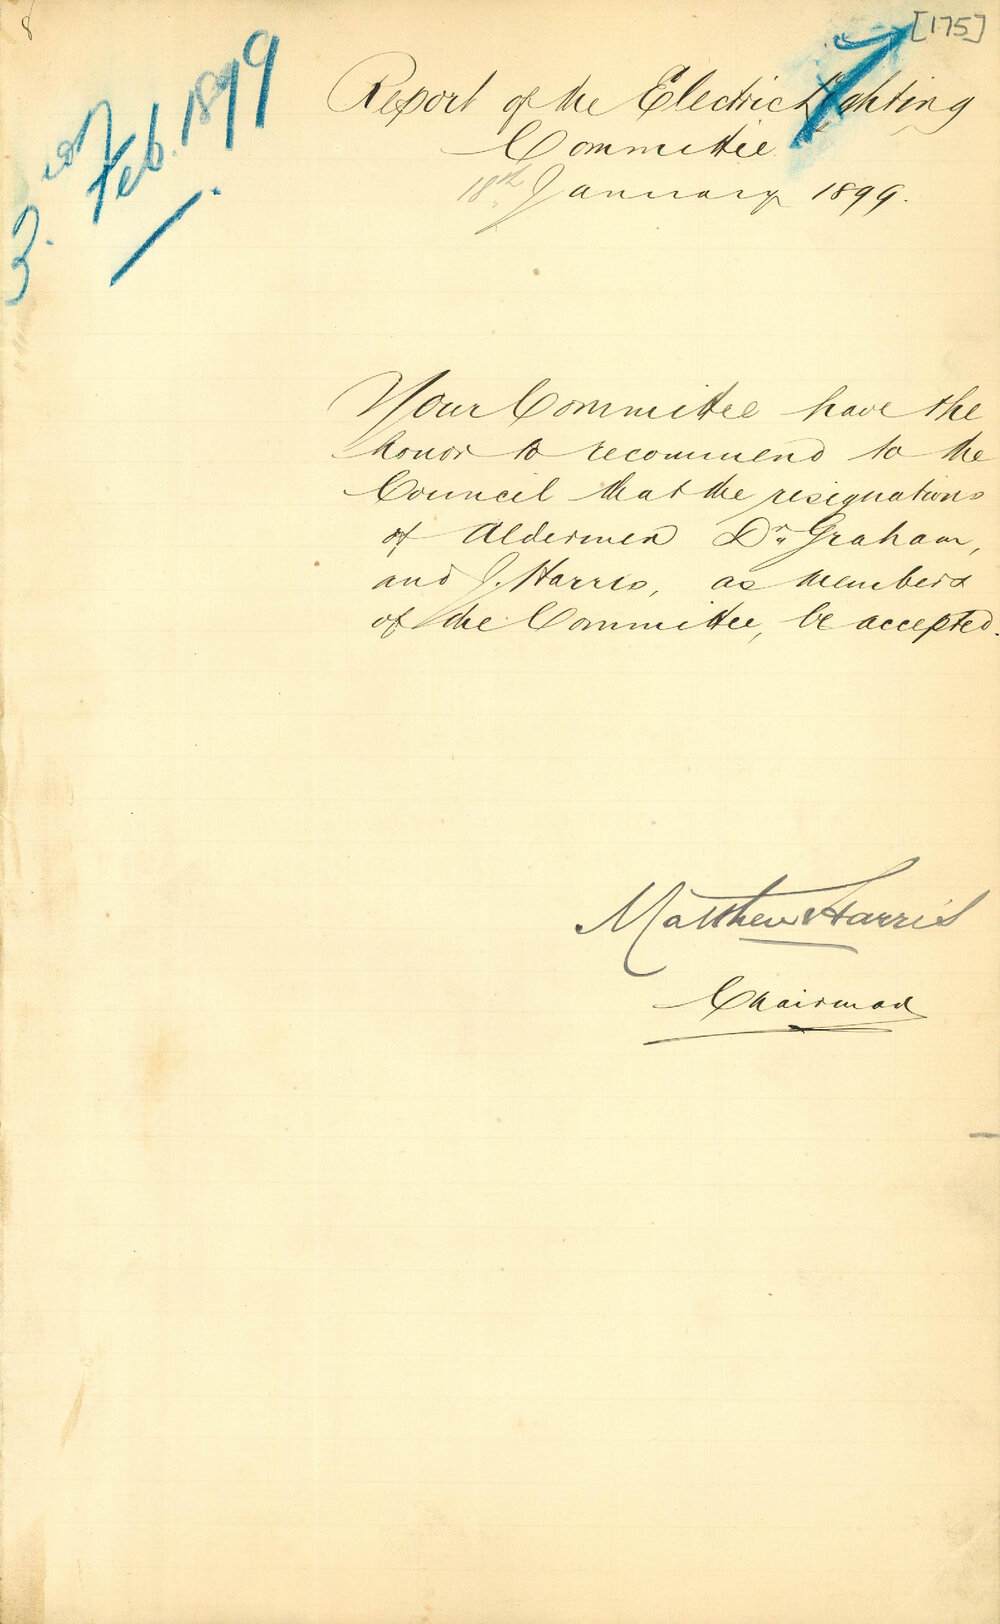 8
[175]
Report of the Electric Lighting
Committee
18th January 1899.
3. Feb. 1899
Your Committee have the
honor to recommend to the
Council that the resignations
of Aldermen Dr. Graham,
and J. Harris, as members
of the Committee, be accepted.
Matthew Harris
Chairman